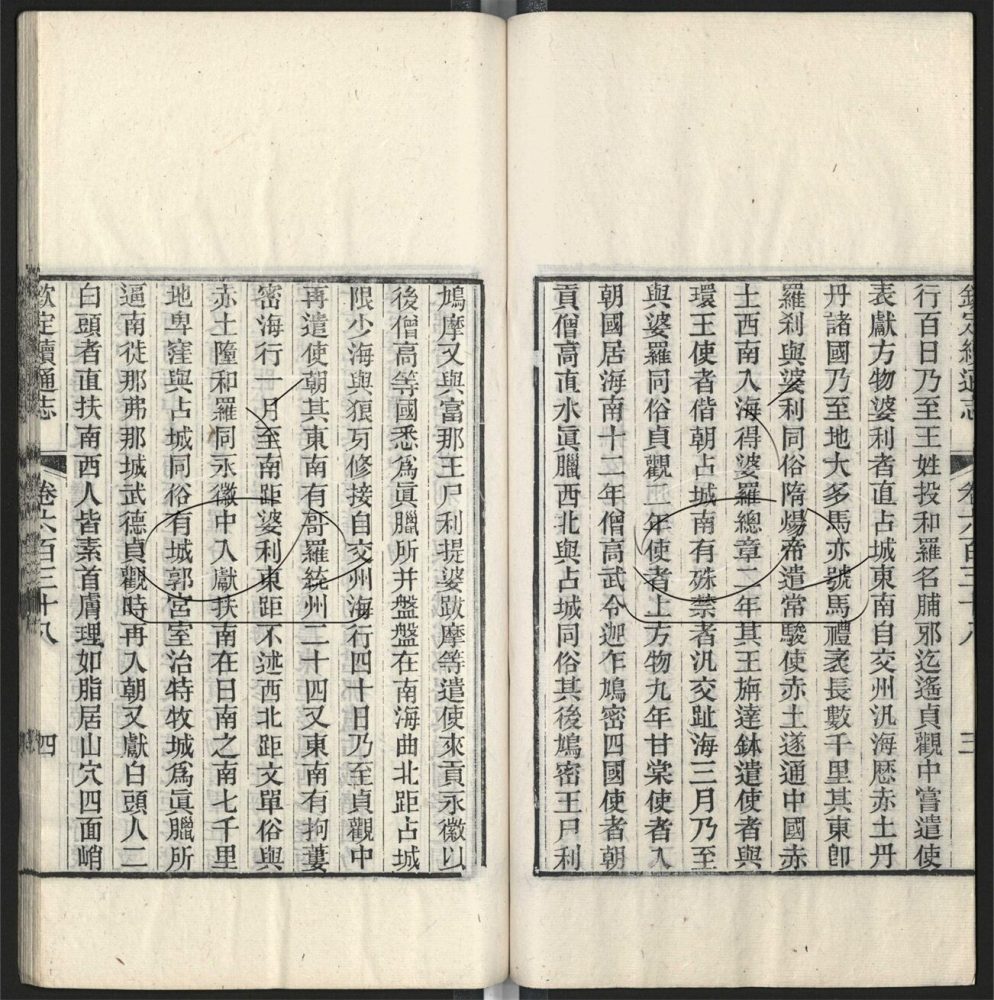 欽定續通志 卷六百三十八 三
行百日乃至王姓投和羅名脯邪迄遙貞觀中嘗遣使
表獻方物婆利者直占城東南自交州汎海歷赤土丹
丹諸國乃至地大多馬亦號馬禮袤長數千里其東即
羅刹與婆利同俗隋煬帝遣常駿使赤土遂通中國赤
土西南入海得婆羅總章二年其王旃達鉢遣使者與
環王使者偕朝占城南有殊柰者汎交趾海三月乃至
與婆羅同俗貞觀二年使者上方物九年甘棠使者入
朝國居海南十二年僧高武令迦乍鳩密四國使者朝
貢僧高直水眞臘西北與占城同俗其後鳩密王尸利
鳩摩又與富那王尸利提婆跋摩等遣使來貢永徽以
後僧高等國悉爲眞臘所并盤盤在南海曲北距占城
限少海與狼牙修接自交州海行四十日乃至貞觀中
再遣使朝其東南有哥羅統州二十四又東南有拘蔞
密海行一月至南距婆利東距不述西北距文單俗與
赤土隆和羅同永徽中入獻扶南在日南之南七千里
地卑窪與占城同俗有城郭宮室治特牧城爲眞臘所
逼南徙那弗那城武德貞觀時再入朝又獻白頭人二
白頭者直扶南西人皆素首膚理如脂居山穴四面峭
欽定續通志 卷六百三十八 四